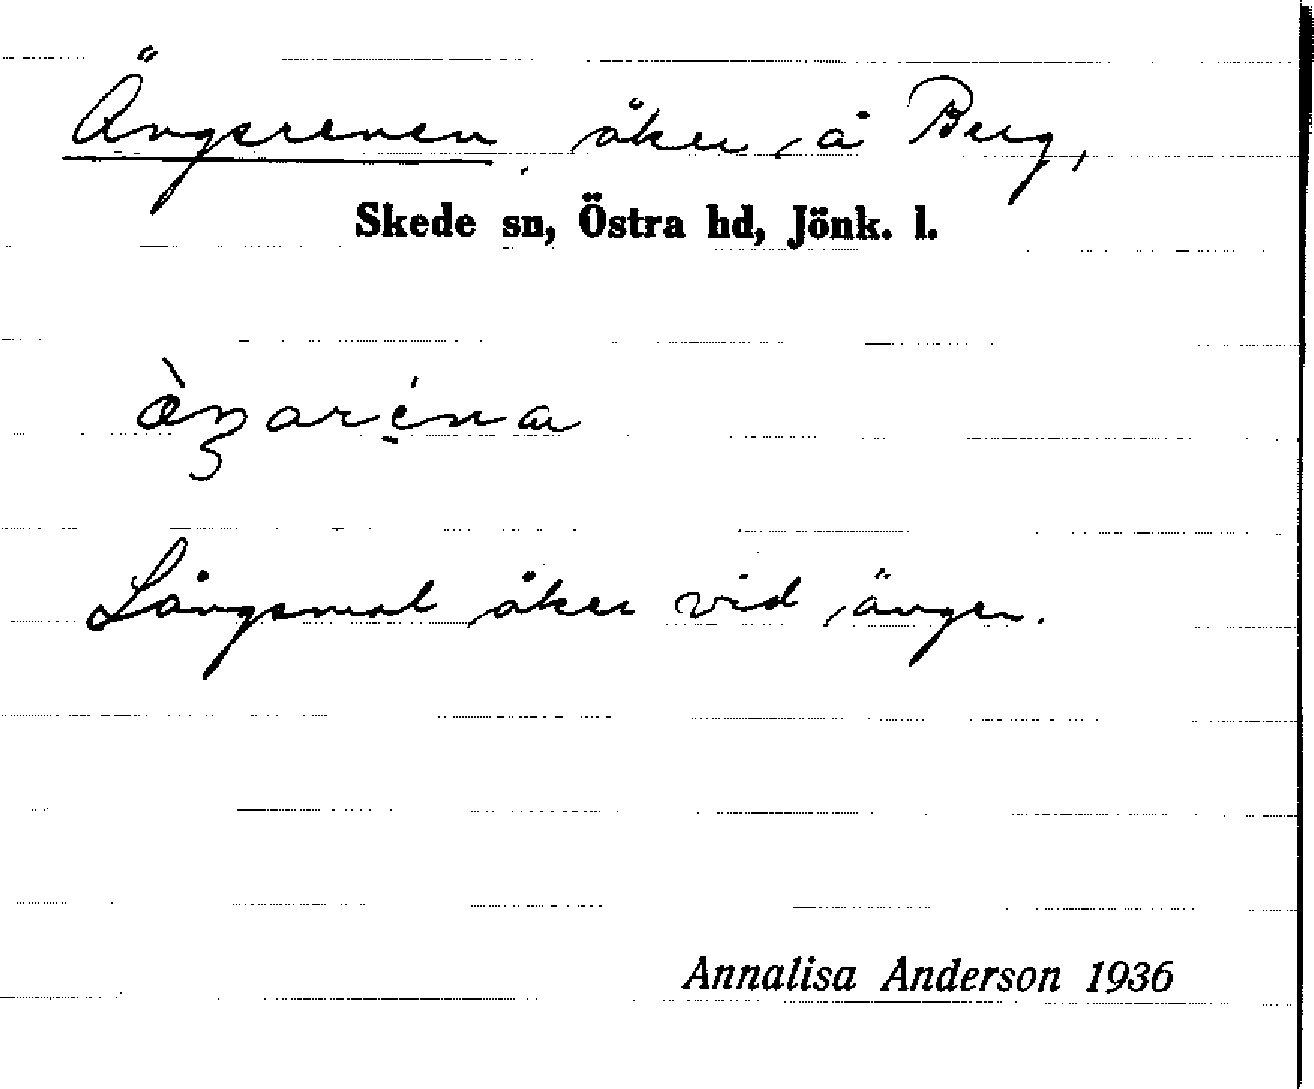 Ängsrenen, åker å Berg,
Skede sn, Östra hd, Jönk. l.
Långsmal åker vid ängen.
Annalisa Anderson 1936